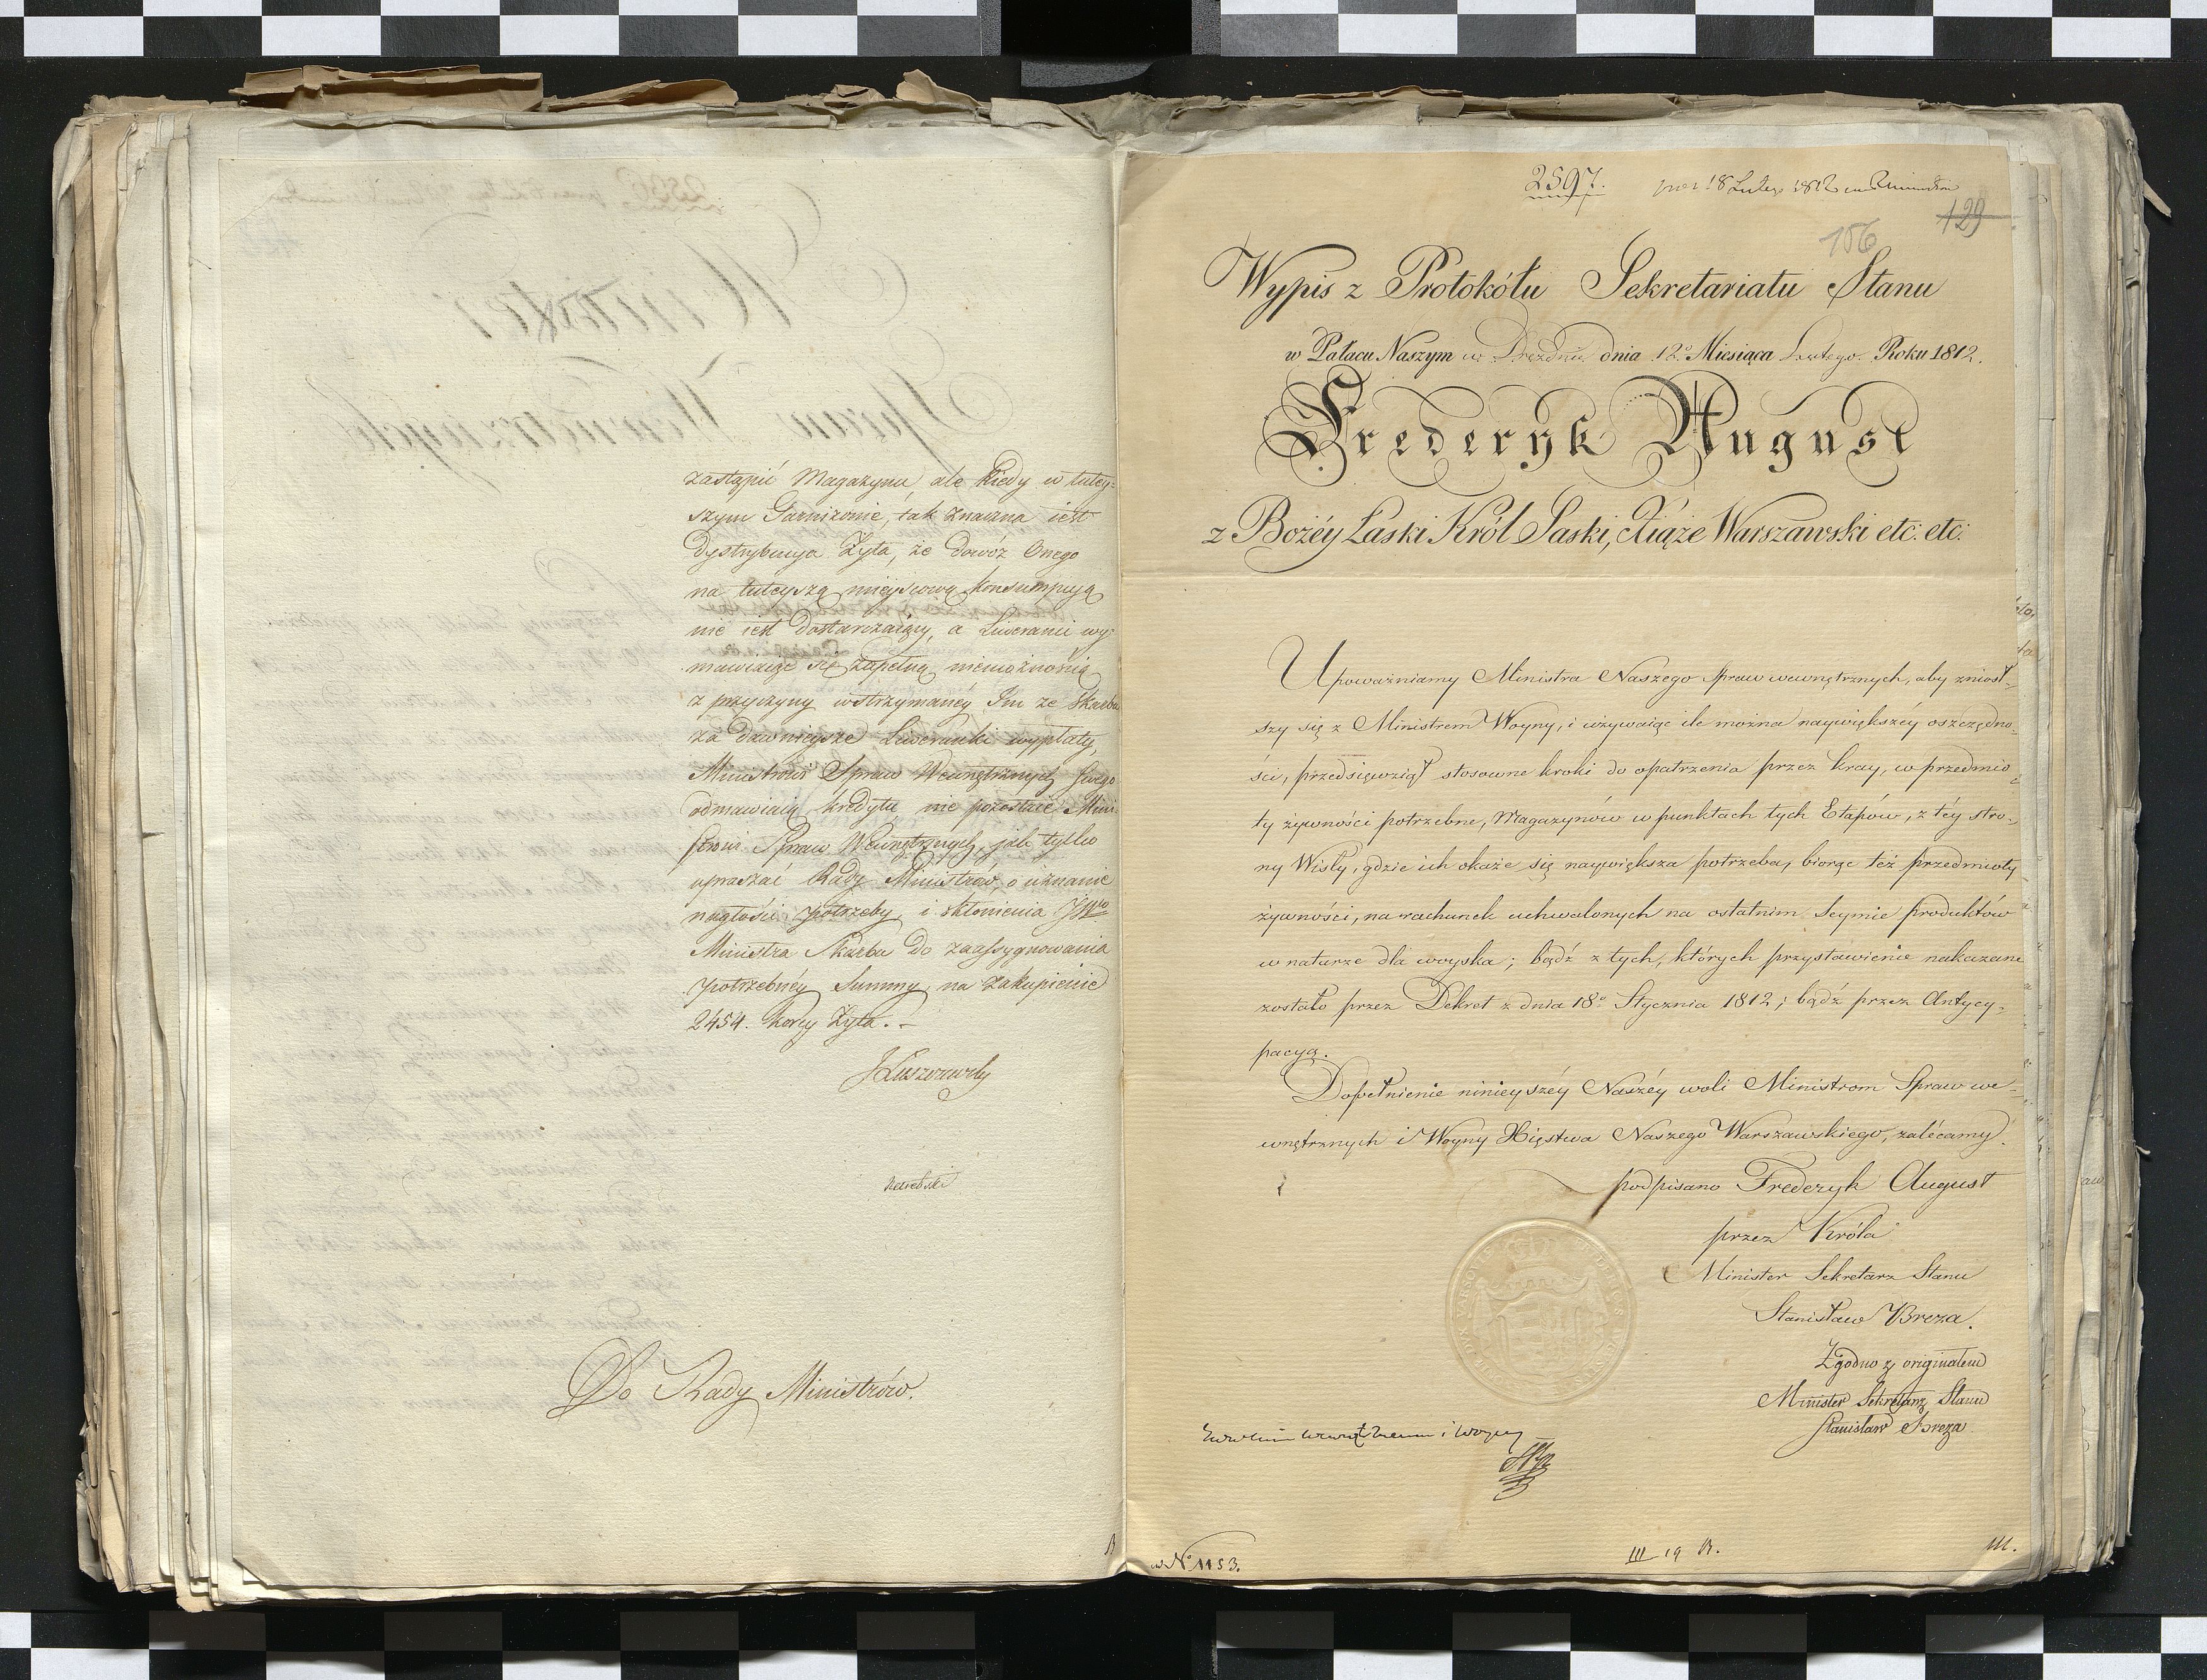 zastąpić Magazynu, ale kiedy w tutey=
szym Garnizonie, tak znaczna iest
dystrybucya Żyta, że dowóz Onego
na tuteyszą mieyscową konsumpcyą
nie iest dostarczaiący, a Liweranci wy=
mawiaiąc się zupełną niemożnością
z przyczyny wstrzymaney Im ze Skarbu
za dawnieysze Liwerunki wypłaty,
Ministrowi Spraw Wewnętrznych swego
odmawiaią kredytu, nie pozostaie Mini
strowi Spraw Wewnętrznych, jak tylko
upraszać Rady Ministrów, o uznanie
nagłości potrzeby, i skłonienia JW
Ministra Skarbu do zaassygnowania
potrzebnéy Summy, na zakupienie
2454. korcy Żyta. -
JŁuszczewski
Do Rady Ministrów.
2597. 18 Lutego 1812
129
156
Wypis z Protokółu Sekretariatu Stanu
w Pałacu Naszym w Dreźnie dnia 12° Miesiąca Lutego Roku 1812.
Frederyk August
z Bożéy Łaski Król Saski, Xiąże Warszawski etc: etc:
Upoważniamy Ministra Naszego Spraw wewnętrznych, aby zniosł=
szy się z Ministrem Woyny, i używaiąc ile można naywiększéy oszczędno=
ści, przedsięwziął stosowne kroki do opatrzenia przez kray, w przedmio
ty żywności potrzebne, Magazynów w punktach tych Etapów, z téy stro=
ny Wisły, gdzie ich okaże się naywiększa potrzeba, biorąc też przedmioty
żywności, na rachunek uchwalonych na ostatnim Seymie produktów
w naturze dla woyska; bądź z tych, których przystawienie nakazane
zostało przez Dekret z dnia 18° Stycznia 1812; bądź przez Antycy=
pacyą.
Dopełnienie ninieyszéy Naszéy woli Ministrom Spraw we=
wnętrznych i Woyny Xięstwa Naszego Warszawskiego, zalécamy.
podpisano Frederyk August
przez Króla
Minister Sekretarz Stanu
Stanisław Breza.
Zgodno z originałem
Minister Sekretarz Stanu
Stanisław Breza
i Woyny
w N° 1153.
III 19 B.
III.